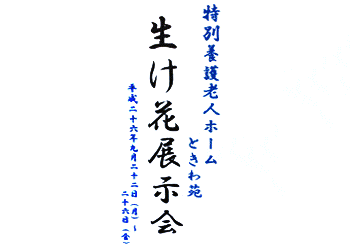 特別養護老人ホーム
ときわ苑
生け花展示会
平成二十六年九月二十二日（月）～
二十六日（金）